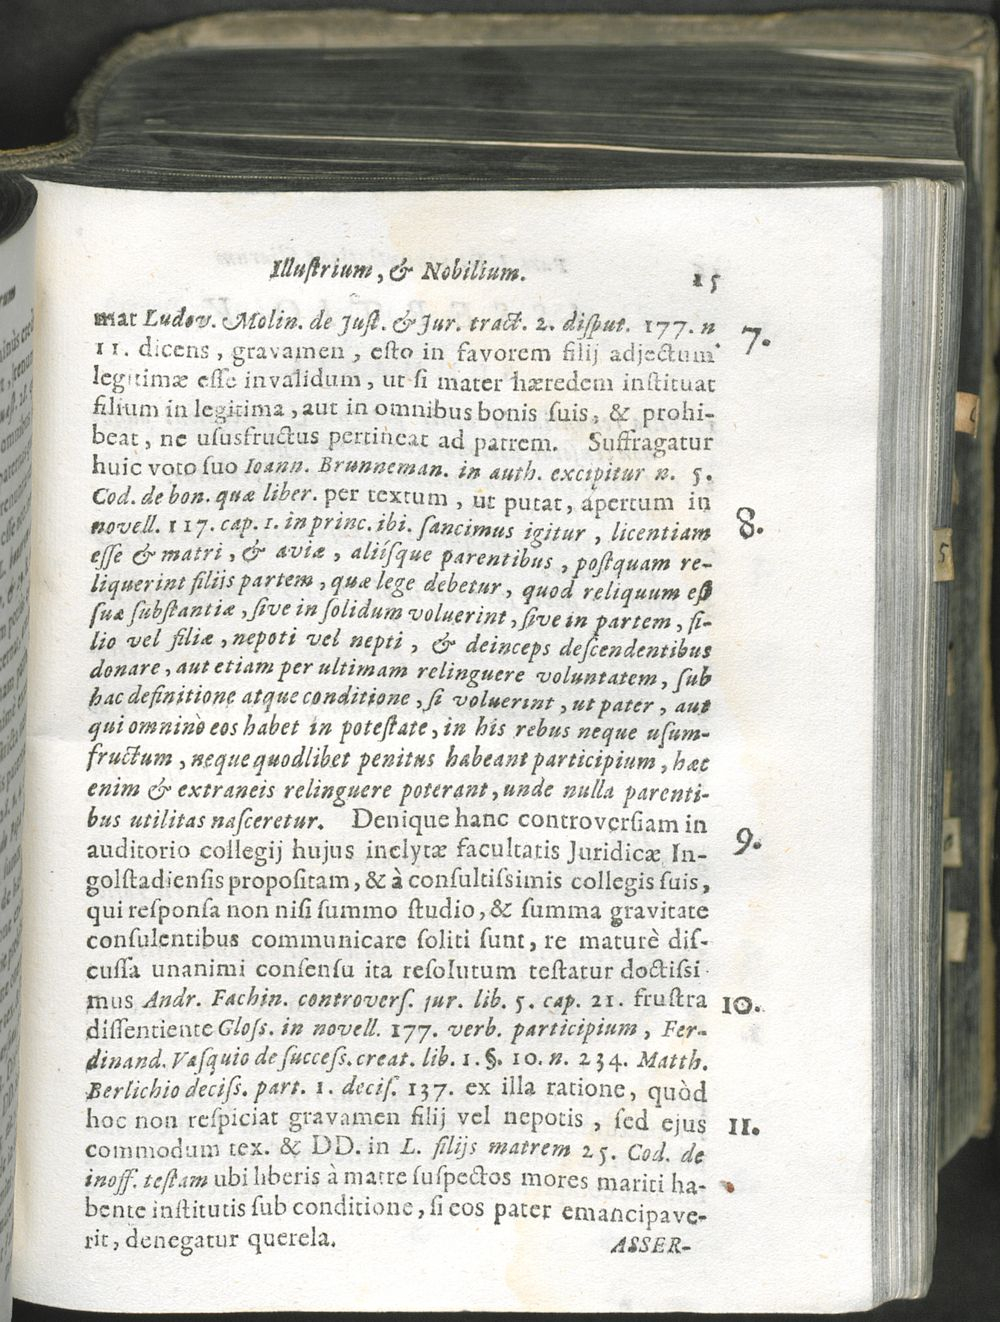 Illustrium, & Nobilium. 15
mat Ludov. Molin. de Just. & Jur. tract. 2. disput. 177. n 7.
11. dicens, gravamen, esto in favorem filij adjectum
legitimæ esse invalidum, ut si mater hæredem instituat
filium in legitima, aut in omnibus bonis suis, & prohi-
beat, ne ususfructus pertineat ad patrem. Suffragatur
huic voto suo Ioann. Brunneman. in auth. excipitur n. 5.
Cod. de bon. quæ liber. per textum, ut putat, apertum in 8.
novell. 117. cap. 1. in princ. ibi. sancimus igitur, licentiam
esse & matri, & aviæ, aliísque parentibus, postquam re-
liquerint filiis partem, quæ lege debetur, quod reliquum est
suæ substantiæ, sive in solidum voluerint, sive in partem, fi-
lio vel filiæ, nepoti vel nepti, & deinceps descendentibus
donare, aut etiam per ultimam relinguere voluntatem, sub
hac definitione atque conditione, si voluerint, ut pater, aut
qui omninò eos habet in potestate, in his rebus neque usum-
fructum, neque quodlibet penitus habeant participium, hæc
enim & extraneis relinguere poterant, unde nulla parenti-
bus utilitas nasceretur. Denique hanc controversiam in 9.
auditorio collegij hujus inclytæ facultatis Juridicæ In-
golstadiensis propositam, & à consultissimis collegis suis,
qui responsa non nisi summo studio, & summa gravitate
consulentibus communicare soliti sunt, re maturè dis-
cussa unanimi consensu ita resolutum testatur doctissi-
mus Andr. Fachin. controvers. jur. lib. 5. cap. 21. frustra 10.
dissentiente Gloss. in novell. 177. verb. participium, Fer-
dinand. Vasquio de success. creat. lib. 1. §. 10. n. 234. Matth.
Berlichio deciss. part. 1. decis. 137. ex illa ratione, quòd
hoc non respiciat gravamen filij vel nepotis, sed ejus 11.
commodum tex. & DD. in L. filijs matrem 25. Cod. de
inoff. testam ubi liberis à matre suspectos mores mariti ha-
bente institutis sub conditione, si eos pater emancipave-
rit, denegatur querela.
ASSER-